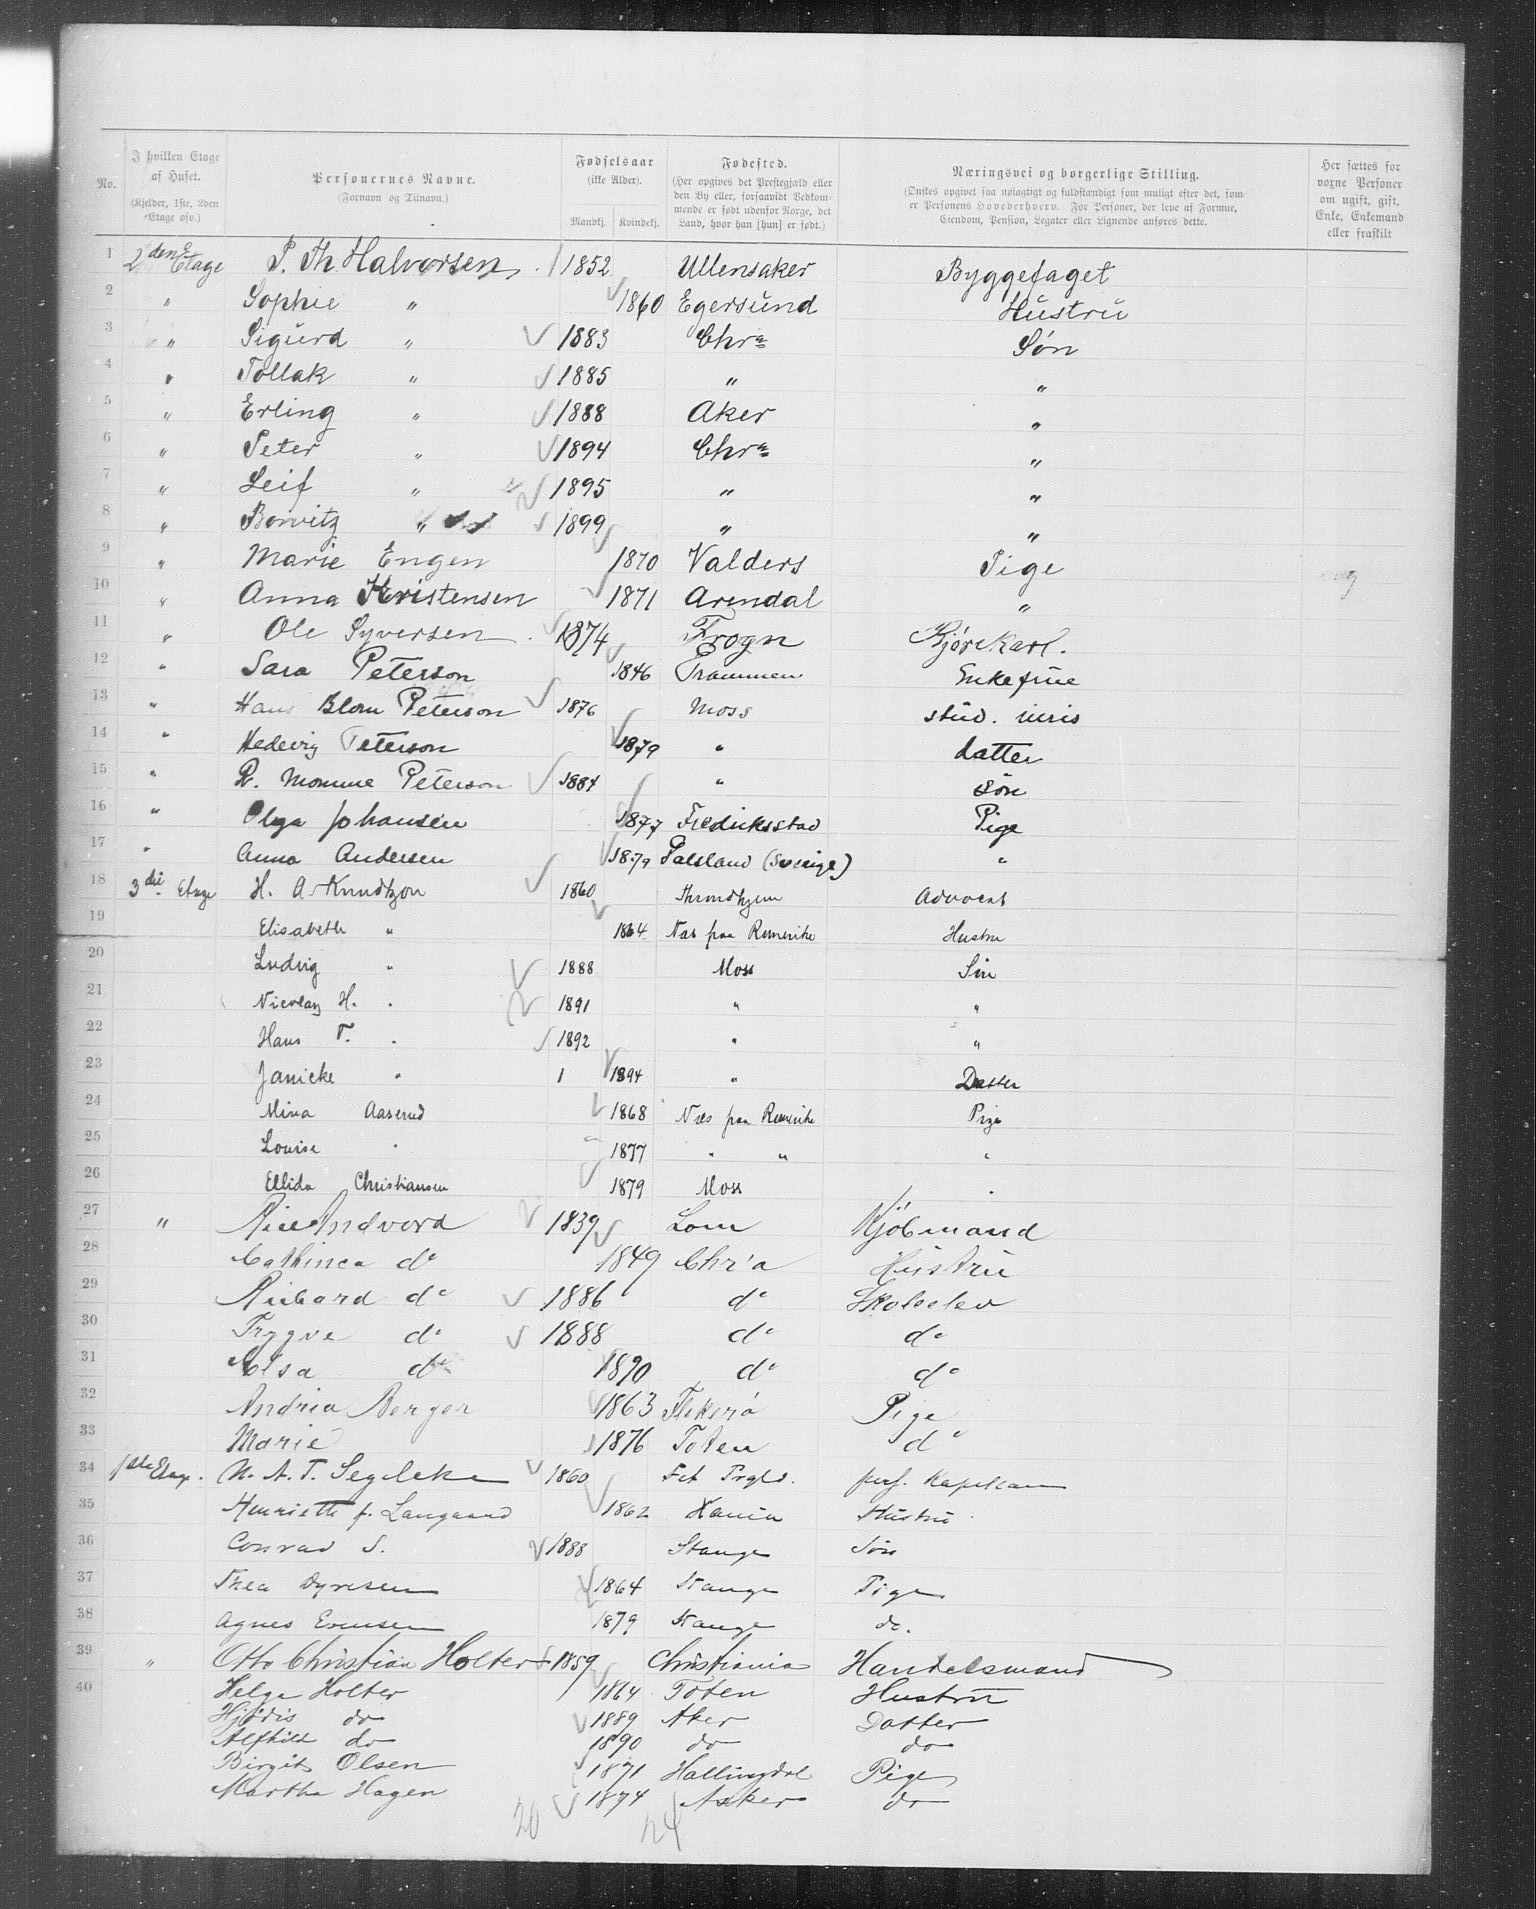 No.
I hvilken Etage af Huset. (Kjelder, 1ste, 2den Etage osv.)
Personernes Navne. (Fornavn og Tilnavn.)
Fødselsaar (ikke Alder). Mandkj. Kvindekj.
Fødested. (Her opgives det Prestegjæld eller den By eller, forsaavidt Vedkommende er født udenfor Norge, det Land, hvor han [hun] er født.)
Næringsvei og borgerlige Stilling. (Ønskes opgivet saa nøiagtigt og fuldstændigt som muligt efter det, som er Personens Hovederhverv. For Personer, der leve af Formue, Eiendom, Pension, Legater eller Lignende anføres dette.
Her sættes for voxne Personer om ugift, gift, Enke, Enkemand eller fraskilt
1 2den Etage P. Th Halvorsen 1852 Ullensaker Byggefaget
2 " Sophie " 1860 Egersund Hustru
3 " Sigurd " 1883 Chra Søn
4 " Tollak " 1885 " "
5 " Erling " 1888 Aker "
6 " Peter " 1894 Chra "
7 " Leif " 1895 " "
8 " " 1899 " "
9 " Marie Engen 1870 Valders Pige
10 " Anna Kristensen 1871 Arendal "
11 " Ole Syversen 1874 Frogn Kjørekarl.
12 " Sara Peterson 1846 Enkefrue
13 " Hans Blom Peterson 1876 Moss stud. iuris
14 " Hedevig Peterson 1879 " datter
15 " R. Momme Peterson 1884 " søn
16 " Olga Johansen 1877 Fredriksstad Pige
17 " Anna Andersen 1879 (Sverige) "
18 3die Etage H. A. Knudtzon 1860 Throndhjem Advocat
19 Elisabeth " 1864 Næs paa Romerike Hustru
20 Ludvig " 1888 Moss Søn
21 Nicolay H. " 1891 " "
22 Hans T. " 1892 " "
23 Janicke " 1 1894 " Datter
24 Mina Aaserud 1868 Næs paa Romerike Pige
25 Louise " 1877 " " "
26 Ellida Christiansen 1879 Moss "
27 " Andvord 1839 Lom Kjøbmand
28 Cathinca do 1849 Chr'a Hustru
29 Richard do 1886 do Skoleelev
30 Trygve do 1888 do do
31 Elsa do 1890 do do
32 Andrea Berger 1863 Flekerø Pige
33 Marie 1876 Toten do
34 1ste Etage. N. A. T. 1860 Fet Prgld. pers. Kapellan
35 Henriette f. Langaard 1862 Hustru
36 Conrad S. 1888 Stange Søn
37 Thea Dyresen 1864 Stange Pige
38 Agnes Evensen 1879 Stange do.
39 " Otto Christian Holter 1859 Christiania Handelsmand
40 Helga Holter 1864 Toten Hustru
Hjørdis do 1889 Aker Datter
Alfhild do 1890 do do
Birgit Olsen 1871 Hallingdal Pige
Martha Hagen 1874 Asker do
20 24